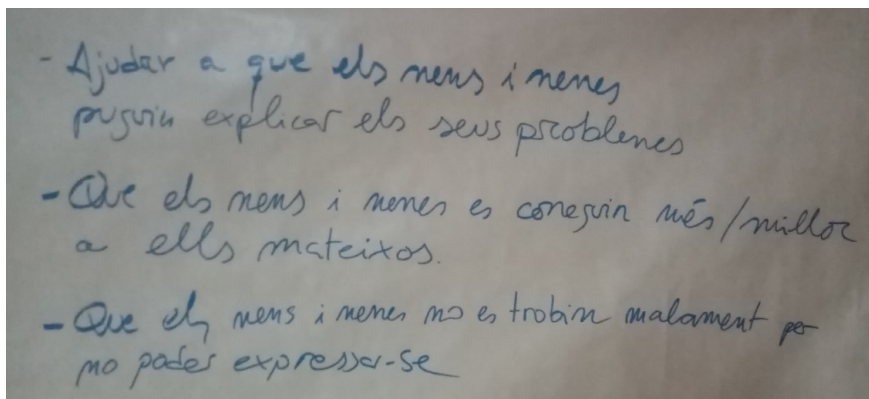 - Ajudar a que els nens i nenes
puguin explicar els seus problemes
- Que els nens i nenes es coneguin més/millor
a ells mateixos.
- Que els nens i nenes no es trobin malament per
no poder expressar-se